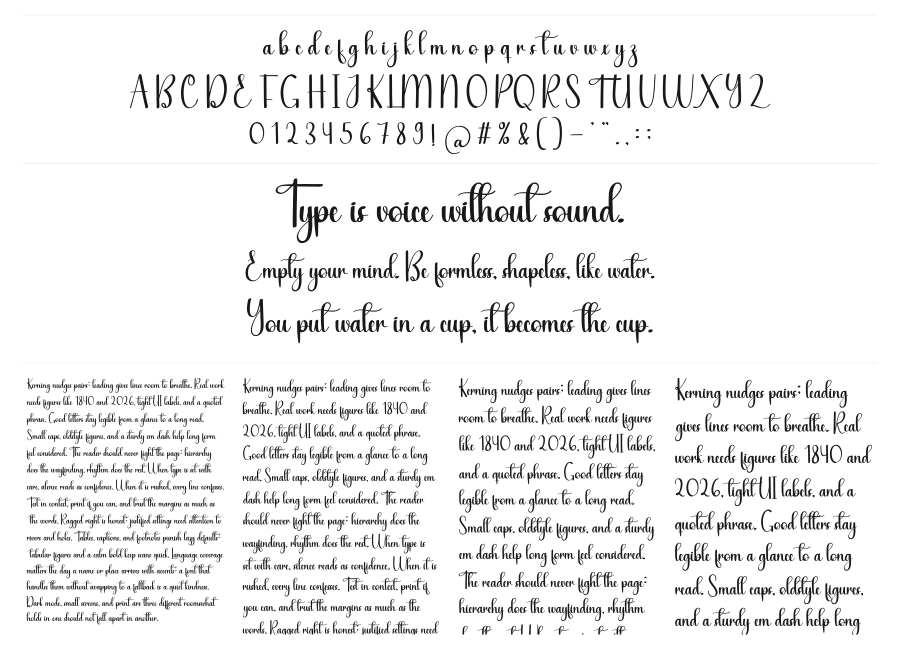 a b c d e f g h i j k l m n o p q r s t u v w x y z
A B C D E F G H I J K L M N O P Q R S T U V W X Y Z
0 1 2 3 4 5 6 7 8 9 ! @ # % & ( ) – ' " . , : :
Type is voice without sound.
Empty your mind. Be formless, shapeless, like water.
You put water in a cup, it becomes the cup.
Kerning nudges pairs: leading gives lines room to breathe. Real work
needs figures like 1840 and 2026, tight UI labels, and a quoted
phrase. Good letters stay legible from a glance to a long read.
Small caps, oldstyle figures, and a sturdy em dash help long form
feel considered. The reader should never fight the page: hierarchy
does the wayfinding, rhythm does the rest. When type is set with
care, silence reads as confidence. When it is rushed, every line confesses.
Test in context, print if you can, and trust the margins as much as
the words. Ragged right is honest: justified settings need attention to
rivers and holes. Tables, captions, and footnotes punish lazy defaults:
tabular figures and a calm bold keep rows quiet. Language coverage
matters the day a name or place arrives with accents: a font that
handles them without swapping to a fallback is a quiet kindness.
Dark mode, small screens, and print are three different rooms: what
holds in one should not fall apart in another.
Kerning nudges pairs: leading gives lines room to
breathe. Real work needs figures like 1840 and
2026, tight UI labels, and a quoted phrase.
Good letters stay legible from a glance to a long
read. Small caps, oldstyle figures, and a sturdy em
dash help long form feel considered. The reader
should never fight the page: hierarchy does the
wayfinding, rhythm does the rest. When type is
set with care, silence reads as confidence. When it is
rushed, every line confesses. Test in context, print if
you can, and trust the margins as much as the
words. Ragged right is honest: justified settings need
Kerning nudges pairs: leading gives lines
room to breathe. Real work needs figures
like 1840 and 2026, tight UI labels,
and a quoted phrase. Good letters stay
legible from a glance to a long read.
Small caps, oldstyle figures, and a sturdy
em dash help long form feel considered.
The reader should never fight the page:
hierarchy does the wayfinding, rhythm
Kerning nudges pairs: leading
gives lines room to breathe. Real
work needs figures like 1840 and
2026, tight UI labels, and a
quoted phrase. Good letters stay
legible from a glance to a long
read. Small caps, oldstyle figures,
and a sturdy em dash help long